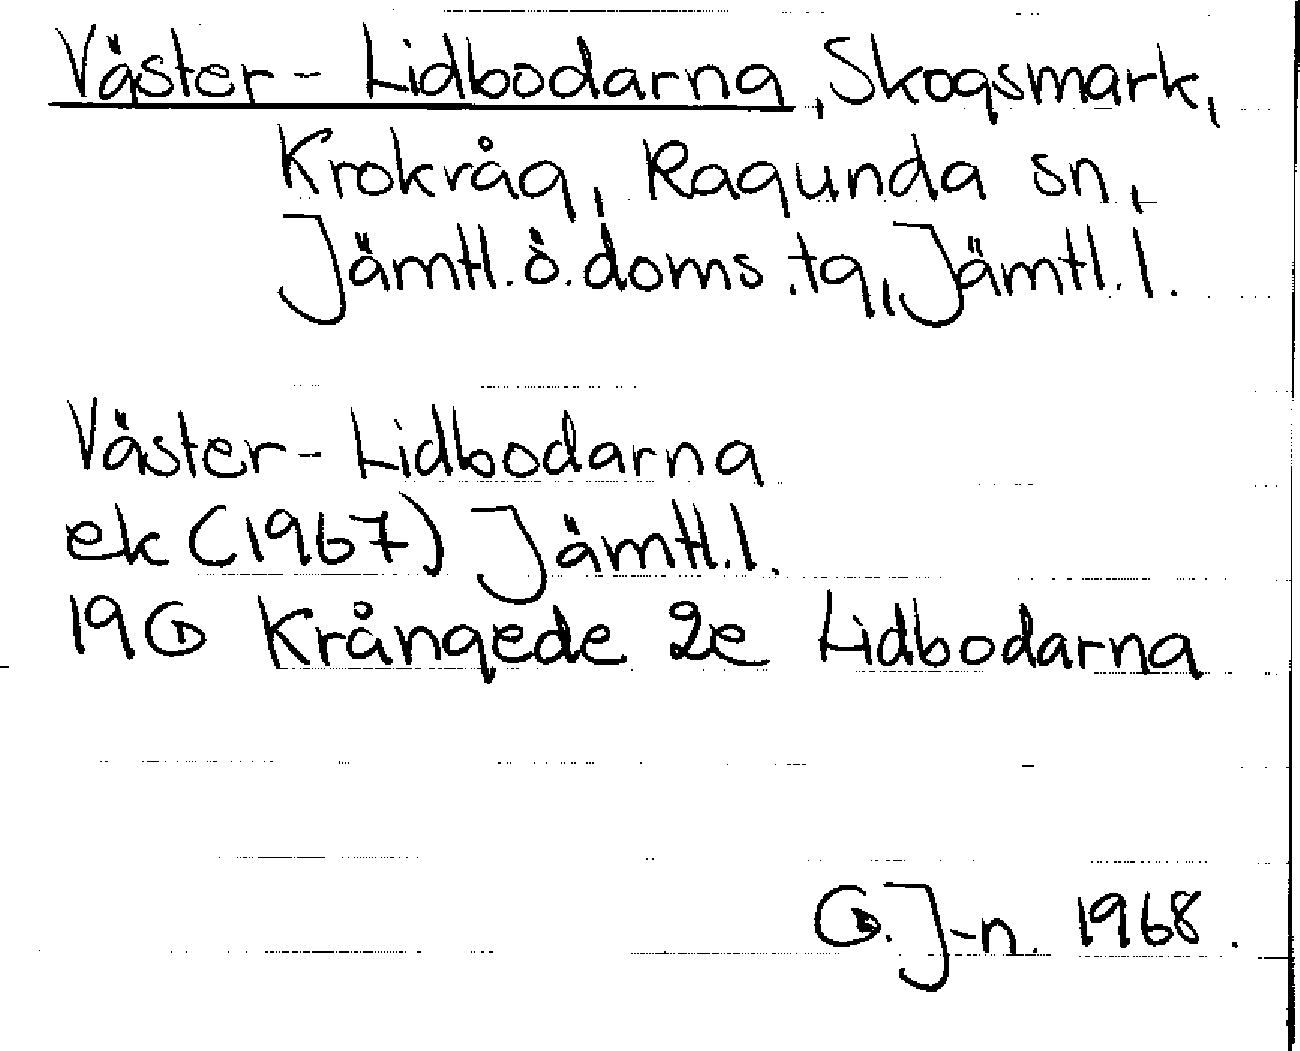 Väster - Lidbodarna, Skogsmark,
Krokvåg, Ragunda sn,
Jämtl. ö. doms. tg, Jämtl. l.
Väster - Lidbodarna
ek (1967) Jämtl. l.
19 G Krångede 2e Lidbodarna
G. J-n. 1968.